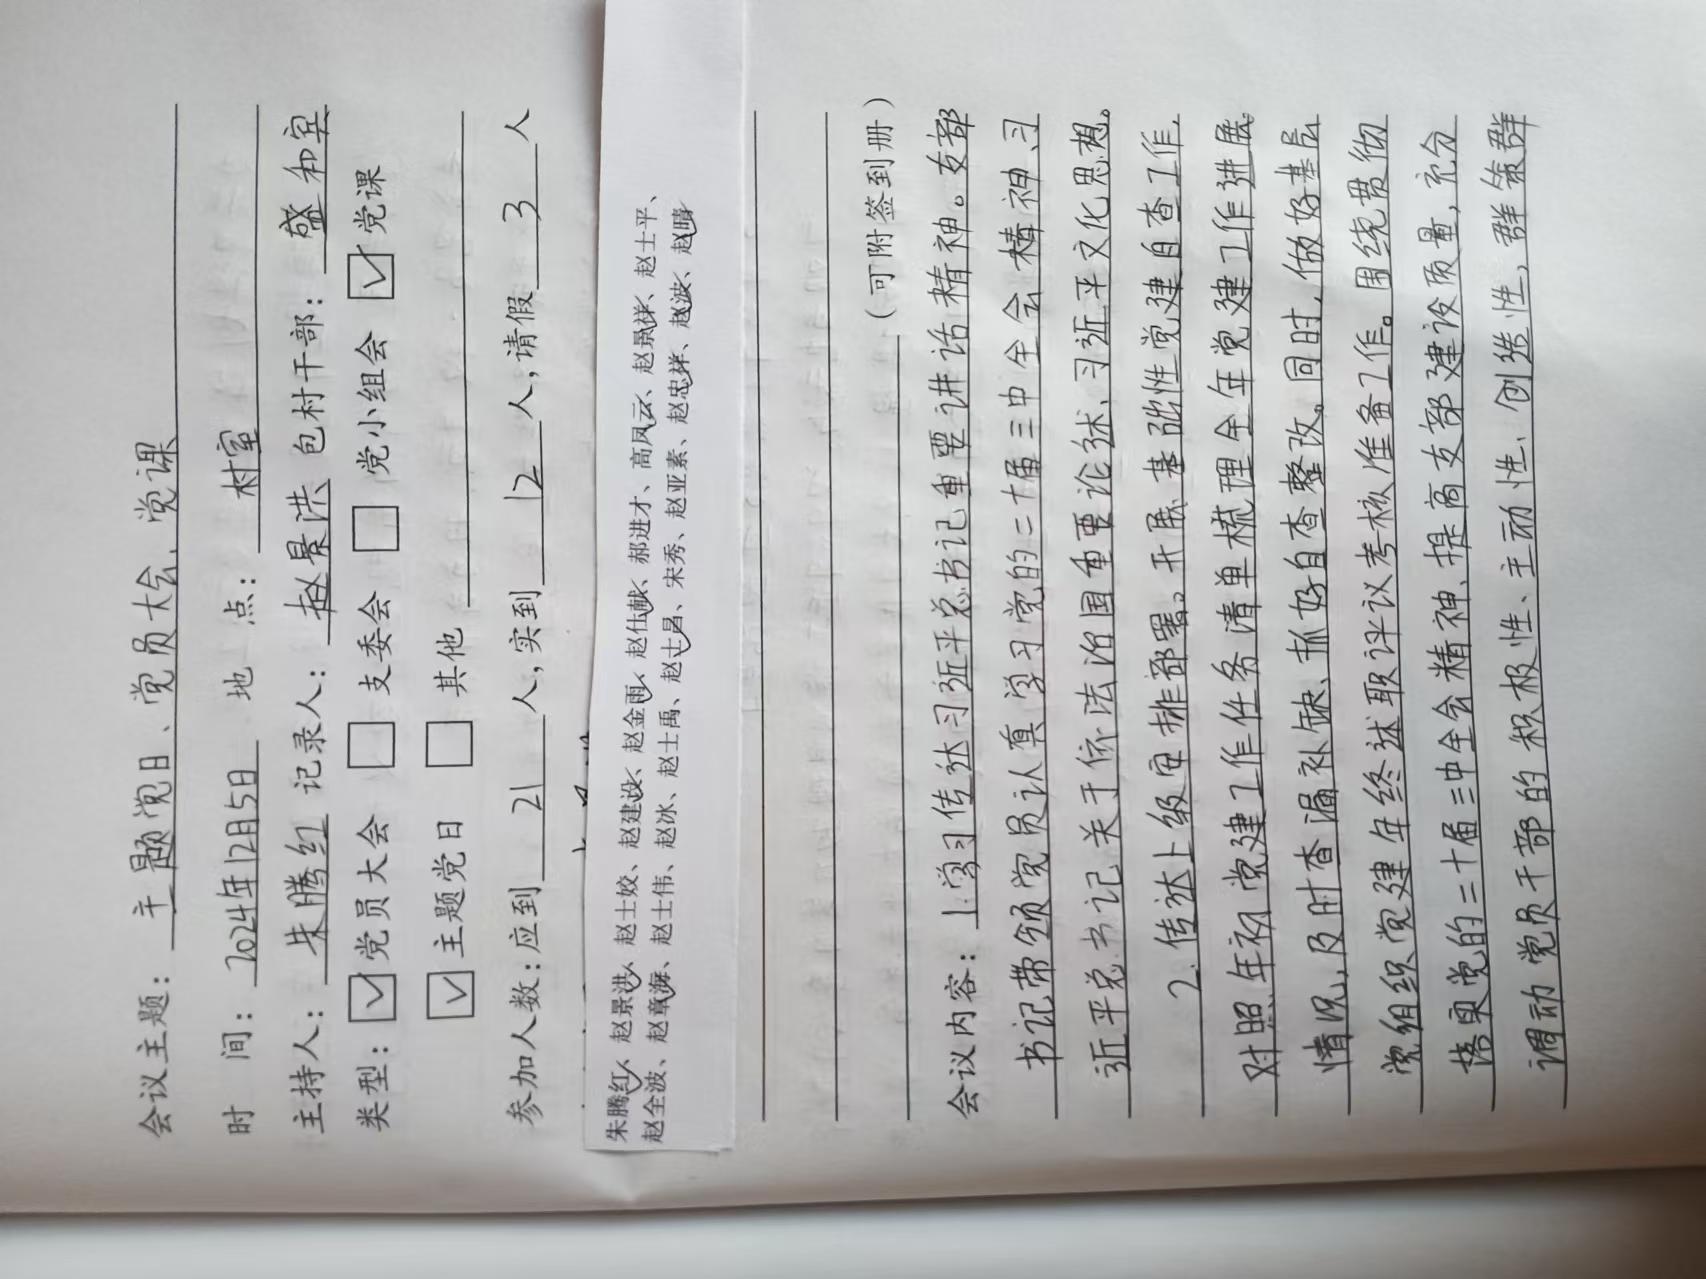 会议主题：主题党日、党员大会、党课
时 间：2024年12月5日 地 点：村室
主持人：朱腾红 记录人：赵景洪 包村干部：盛和宾
类型：☑党员大会 □支委会 □党小组会 ☑党课
☑主题党日 □其他
参加人数：应到21人，实到12人，请假3人
朱腾红、赵景洪、赵士姣、赵建设、赵金雨、赵仕献、郝进才、高凤云、赵景祥、赵士平、
赵全波、赵章海、赵士伟、赵冰、赵士禹、赵士昌、宋秀、赵亚素、赵忠祥、赵波、赵晴
（可附签到册）
会议内容：1.学习传达习近平总书记重要讲话精神。支部
书记带领党员认真学习党的二十届三中全会精神、习
近平总书记关于依法治国重要论述、习近平文化思想。
2.传达上级安排部署。开展基础性党建自查工作，
对照年初党建工作任务清单梳理全年党建工作进展
情况，及时查漏补缺、抓好自查整改。同时，做好基层
党组织党建年终述职评议考核准备工作。围绕贯彻
落实党的二十届三中全会精神、提高支部建设质量，充分
调动党员干部的积极性、主动性、创造性，群策群